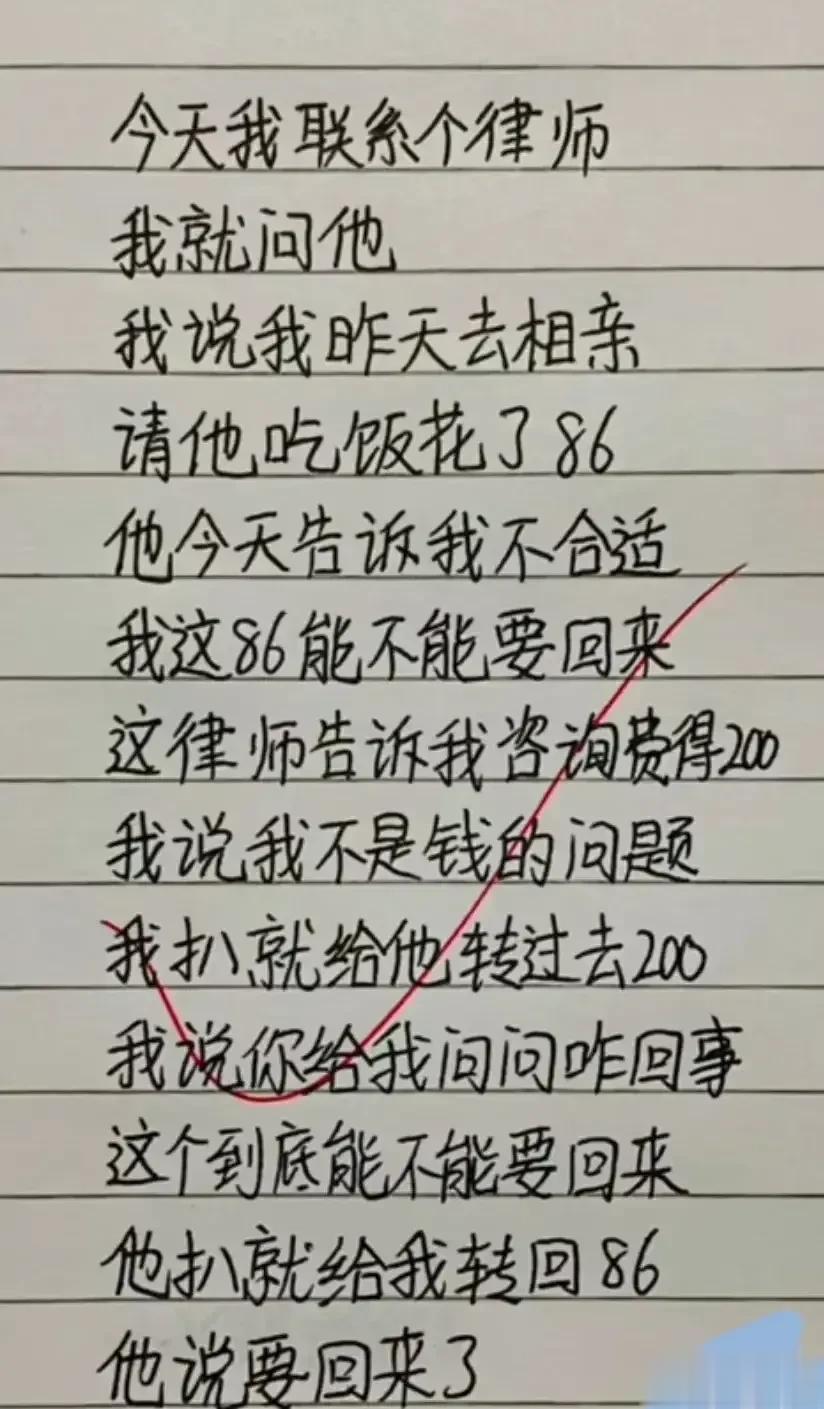 今天我联系个律师
我就问他
我说我昨天去相亲
请他吃饭花了86
他今天告诉我不合适
我这86能不能要回来
这律师告诉我咨询费得200
我说我不是钱的问题
我扒就给他转过去200
我说你给我问问咋回事
这个到底能不能要回来
他扒就给我转回86
他说要回来了